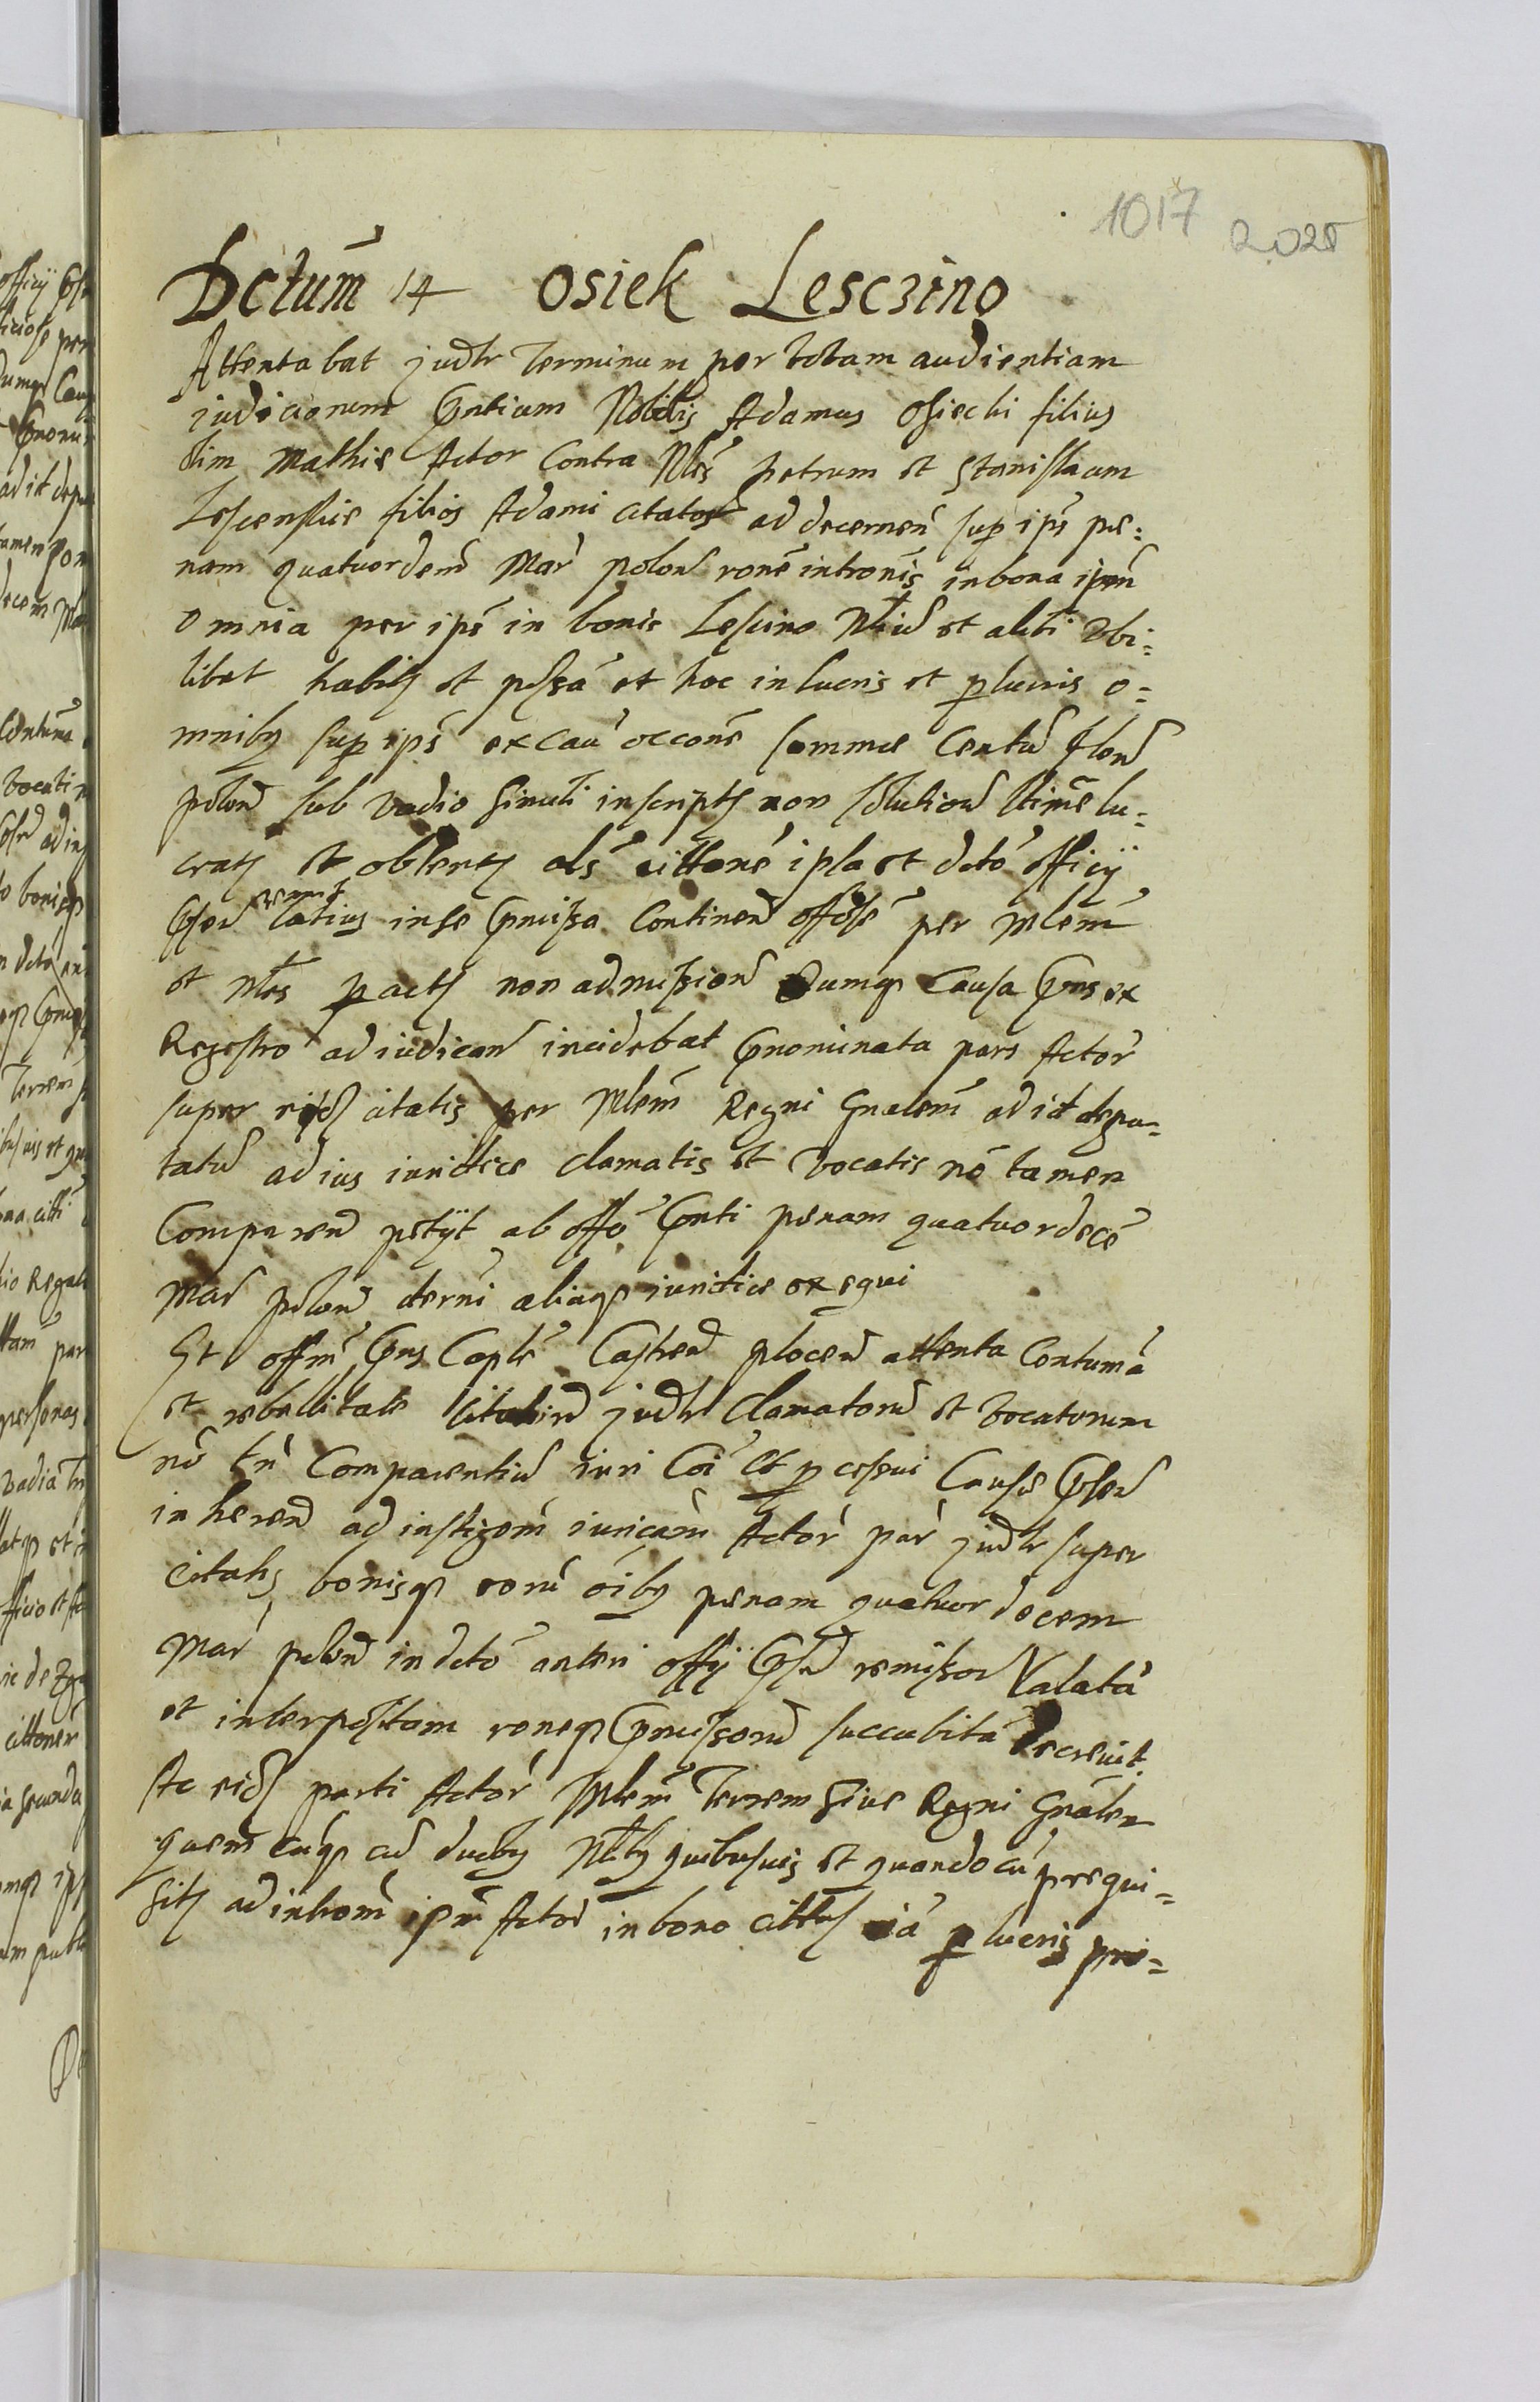 1017 2025
Dctum 14 Osiek Lesczino
Attentabat judtr Terminum per totam audientiam
iudiciorum pntium Nobilis Adamus Osiecki filius
olim Mathie Actor Contra Nles petrum et Stanislaum
filios Adami citatos ad decernen sup ips pe:
nam quatuordem Mar polon rone intronis in bona ipm
omnia per ips in bonis Lescino et alibi Vbi:
libet habits et possa et hoc in lucris et plucris o=
mnibq sup ips ex cau occone summe Centu flon
polon sub vadio simili inscripts non solution ltime lu:
crats et obtents als cittone ipla et dcto officy
pnsen remit latius in se pmissa Continen offose per Mlem
et Nles pacts non admission Dumq Causa pns ex
Regestro ad iudican incidebat pnominata pars Actor
super citatis per Mlem Regni Gnalem ad id depu=
tatu ad ius iuridice clamatis et vocatis no tamen
Comparen petyt ab offo pnti penam quatuordece
Mar polon cterni aliaq iuridice exequi
Et offm pns Caple Castren plocen attenta Contuma
et rebellitate Citatoru judtr Clamatoru et vocatorum
no tn Comparentiu iuri Coi et pcessui Cause pnsen
inheren ad instigom iuricam Actor par judtr super
Citatis bonisq eoru oibq penam quatuor decem
Mar polon in dcto anteri offy pnsen remissor Valata
et interpositam roneq pmissoru succubita Decreuit.
Ac eids parti Actor Mlem Terrem siue Regni Gnalem
quemcuq cu duobq Nlibq quibusuis et quandocu prequi=
sits ad introm ipm Actor in bona cittus ia p lucris pri=